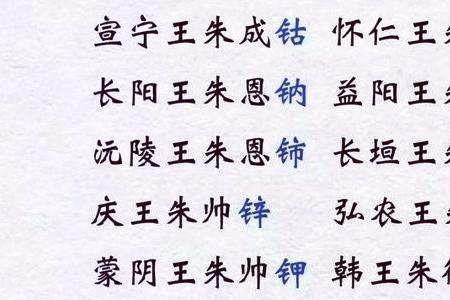 宣宁王朱成钴 怀仁王朱
长阳王朱恩钠 益阳王
沅陵王朱恩铈 长垣王
庆王朱帅锌 弘农王
蒙阴王朱帅钾 韩王朱